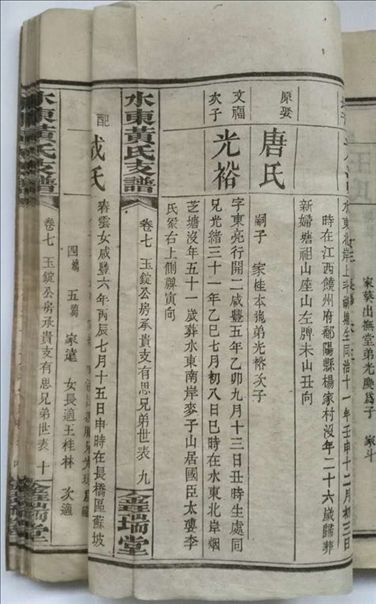 家斗
水東北岸上斗祠塘生同治十一年壬申十二月初三日
時在江西饒州府鄱陽縣楊家村沒年二十六歲歸葬
新婦塘祖山座山左牌未山丑向
原娶
唐氏
嗣子 家桂本 弟光裕次子
文福
次子
光裕
字東亮行開二咸豐五年乙卯九月十三日丑時生處同
兄光緒三十一年乙巳七月初八日巳時在水東北岸烟
芝塘沒年五十一歲葬水東南岸麥子山居國臣太婆李
氏冢右上側 寅向
水東黃氏支譜 卷七 玉錠公房承貴支有思兄弟世表 九 鑫瑞堂
配
成氏
春雲女咸豐六年丙辰七月十五日申時在長橋區蘇坡
四殤 五殤 家遠 女長適王桂林 次適
水東黃氏支譜 卷七 玉錠公房承貴支有思兄弟世表 十